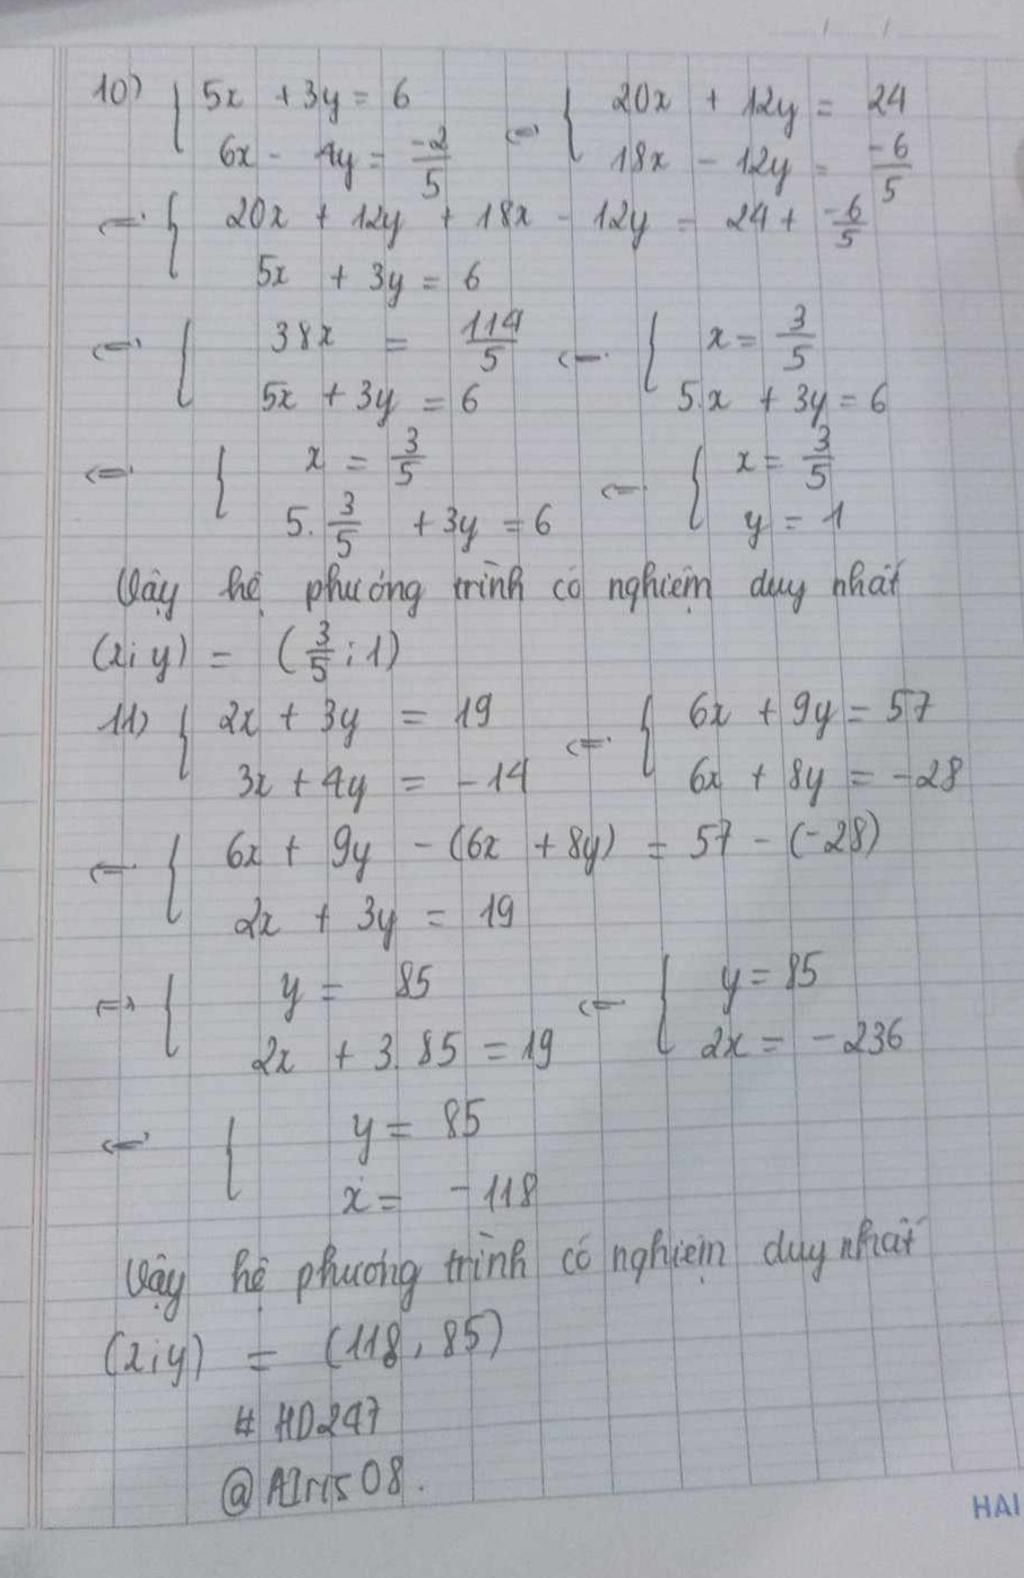 10) { 5x + 3y = 6 ⇔ { 20x + 12y = 24
6x - 4y = -2/5 18x - 12y = -6/5
⇔ { 20x + 12y + 18x - 12y = 24 + -6/5
5x + 3y = 6
⇔ { 38x = 114/5 ⇔ { x = 3/5
5x + 3y = 6 5.x + 3y = 6
⇔ { x = 3/5 ⇔ { x = 3/5
5. 3/5 + 3y = 6 y = 1
Vậy hệ phương trình có nghiệm duy nhất
(x;y) = (3/5;1)
11) { 2x + 3y = 19 ⇔ { 6x + 9y = 57
3x + 4y = -14 6x + 8y = -28
⇔ { 6x + 9y - (6x + 8y) = 57 - (-28)
2x + 3y = 19
⇔ { y = 85 ⇔ { y = 85
2x + 3.85 = 19 2x = -236
⇔ { y = 85
x = -118
Vậy hệ phương trình có nghiệm duy nhất
(x;y) = (118, 85)
# HD247
HAI